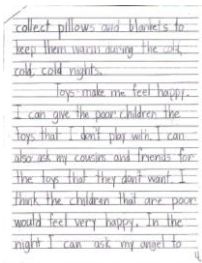 collect pillows and blankets to
keep them warm during the cold,
cold, cold nights.
Toys make me feel happy.
I can give the poor children the
toys that I don't play with. I can
also ask my cousins and friends for
the toys that they don't want. I
think the children that are poor
would feel very happy. In the
night I can ask my angel to
4